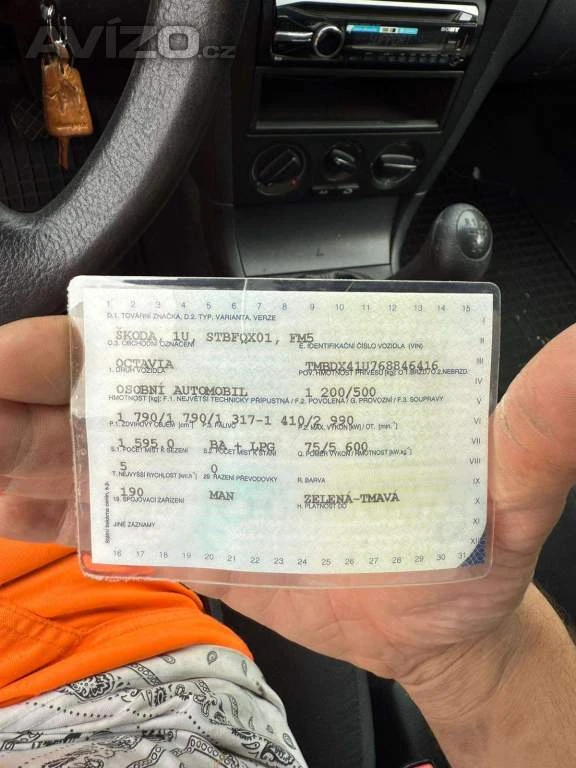 AVÍZO.cz
SONY
1 2 3 4 5 6 7 8 9 10 11 12 13 14 15
D.1. TOVÁRNÍ ZNAČKA, D.2. TYP, VARIANTA, VERZE
ŠKODA, 1U STBFQX01, FM5
D.3. OBCHODNÍ OZNAČENÍ E. IDENTIFIKAČNÍ ČÍSLO VOZIDLA (VIN)
OCTAVIA TMBDX41U768846416
1. DRUH VOZIDLA POV. HMOTNOST PŘÍVĚSU [kg] O.1.BRZD./O.2.NEBRZD.
OSOBNÍ AUTOMOBIL 1 200/500
HMOTNOST [kg]: F.1. NEJVĚTŠÍ TECHNICKY PŘÍPUSTNÁ / F.2. POVOLENÁ / G. PROVOZNÍ / F.3. SOUPRAVY
1 790/1 790/1 317-1 410/2 990
P.1. ZDVIHOVÝ OBJEM [cm³] P.3. PALIVO P.2. MAX. VÝKON [kW] / OT. [min⁻¹]
1 595.0 BA + LPG 75/5 600
S.1. POČET MÍST K SEZENÍ S.2. POČET MÍST K STÁNÍ Q. POMĚR VÝKON / HMOTNOST [kW.kg⁻¹]
5 0
T. NEJVYŠŠÍ RYCHLOST [km.h⁻¹] 29. ŘAZENÍ PŘEVODOVKY R. BARVA
190 MAN ZELENÁ-TMAVÁ
19. SPOJOVACÍ ZAŘÍZENÍ H. PLATNOST DO
JINÉ ZÁZNAMY
16 17 18 19 20 21 22 23 24 25 26 27 28 29 30 31
I
II
III
IV
V
VI
VII
VIII
IX
X
XI
XII
Státní tiskárna cenin, s.p.